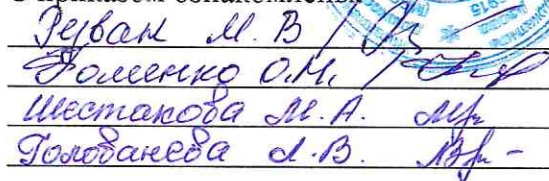 С приказом ознакомлены:
М. В
Фоменко О.Н.
Шестакова М. А.
Голованева Л.В.